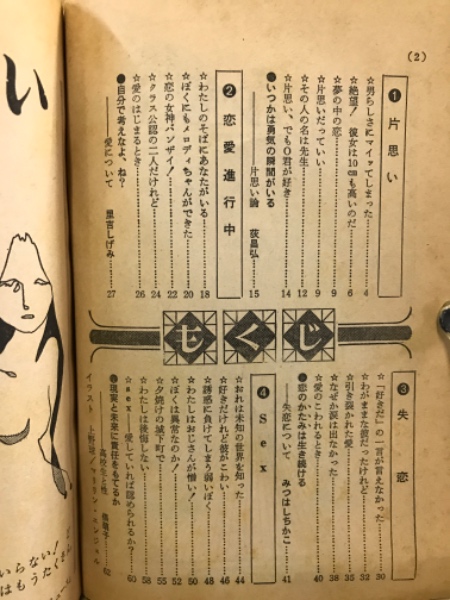 (2)
❶片思い
☆男らしさにマイッてしまった……4
☆絶望！ 彼女は10cmも高いのだ……6
☆夢の中の恋……9
☆片思いだっていい……9
☆その人の名は先生……12
☆片思い、でもO君が好き……14
●いつかは勇気の瞬間がいる
——片思い論 荻昌弘……15
❷恋愛進行中
☆わたしのそばにあなたがいる……18
☆ぼくにもメロディちゃんができた……20
☆恋の女神バンザイ！……22
☆クラス公認の二人だけれど……24
☆愛のはじまるとき……26
●自分で考えなよ、ね？
——愛について 里吉しげみ……27
もくじ
❸失恋
☆「好きだ」の一言が言えなかった……30
☆わがままな彼だったけれど……32
☆引き裂かれた愛……35
☆なぜか涙は出なかった……38
☆愛のこわれるとき……40
●恋のかたみは生き続ける
——失恋について みつはしちかこ……41
❹Sex
☆おれは未知の世界を知った……44
☆好きだけれど彼がこわい……46
☆誘惑に負けてしまう弱いぼく……48
☆わたしはおじさんが憎い！……50
☆ぼくは異常なのか！……52
☆夕焼けの城下町で……55
☆わたしは後悔しない……58
☆sex——愛していれば認められるか？……60
●現実と未来に責任をもてるか
——高校生と性……62
イラスト 上野
い
いらない！
はもうたくさ